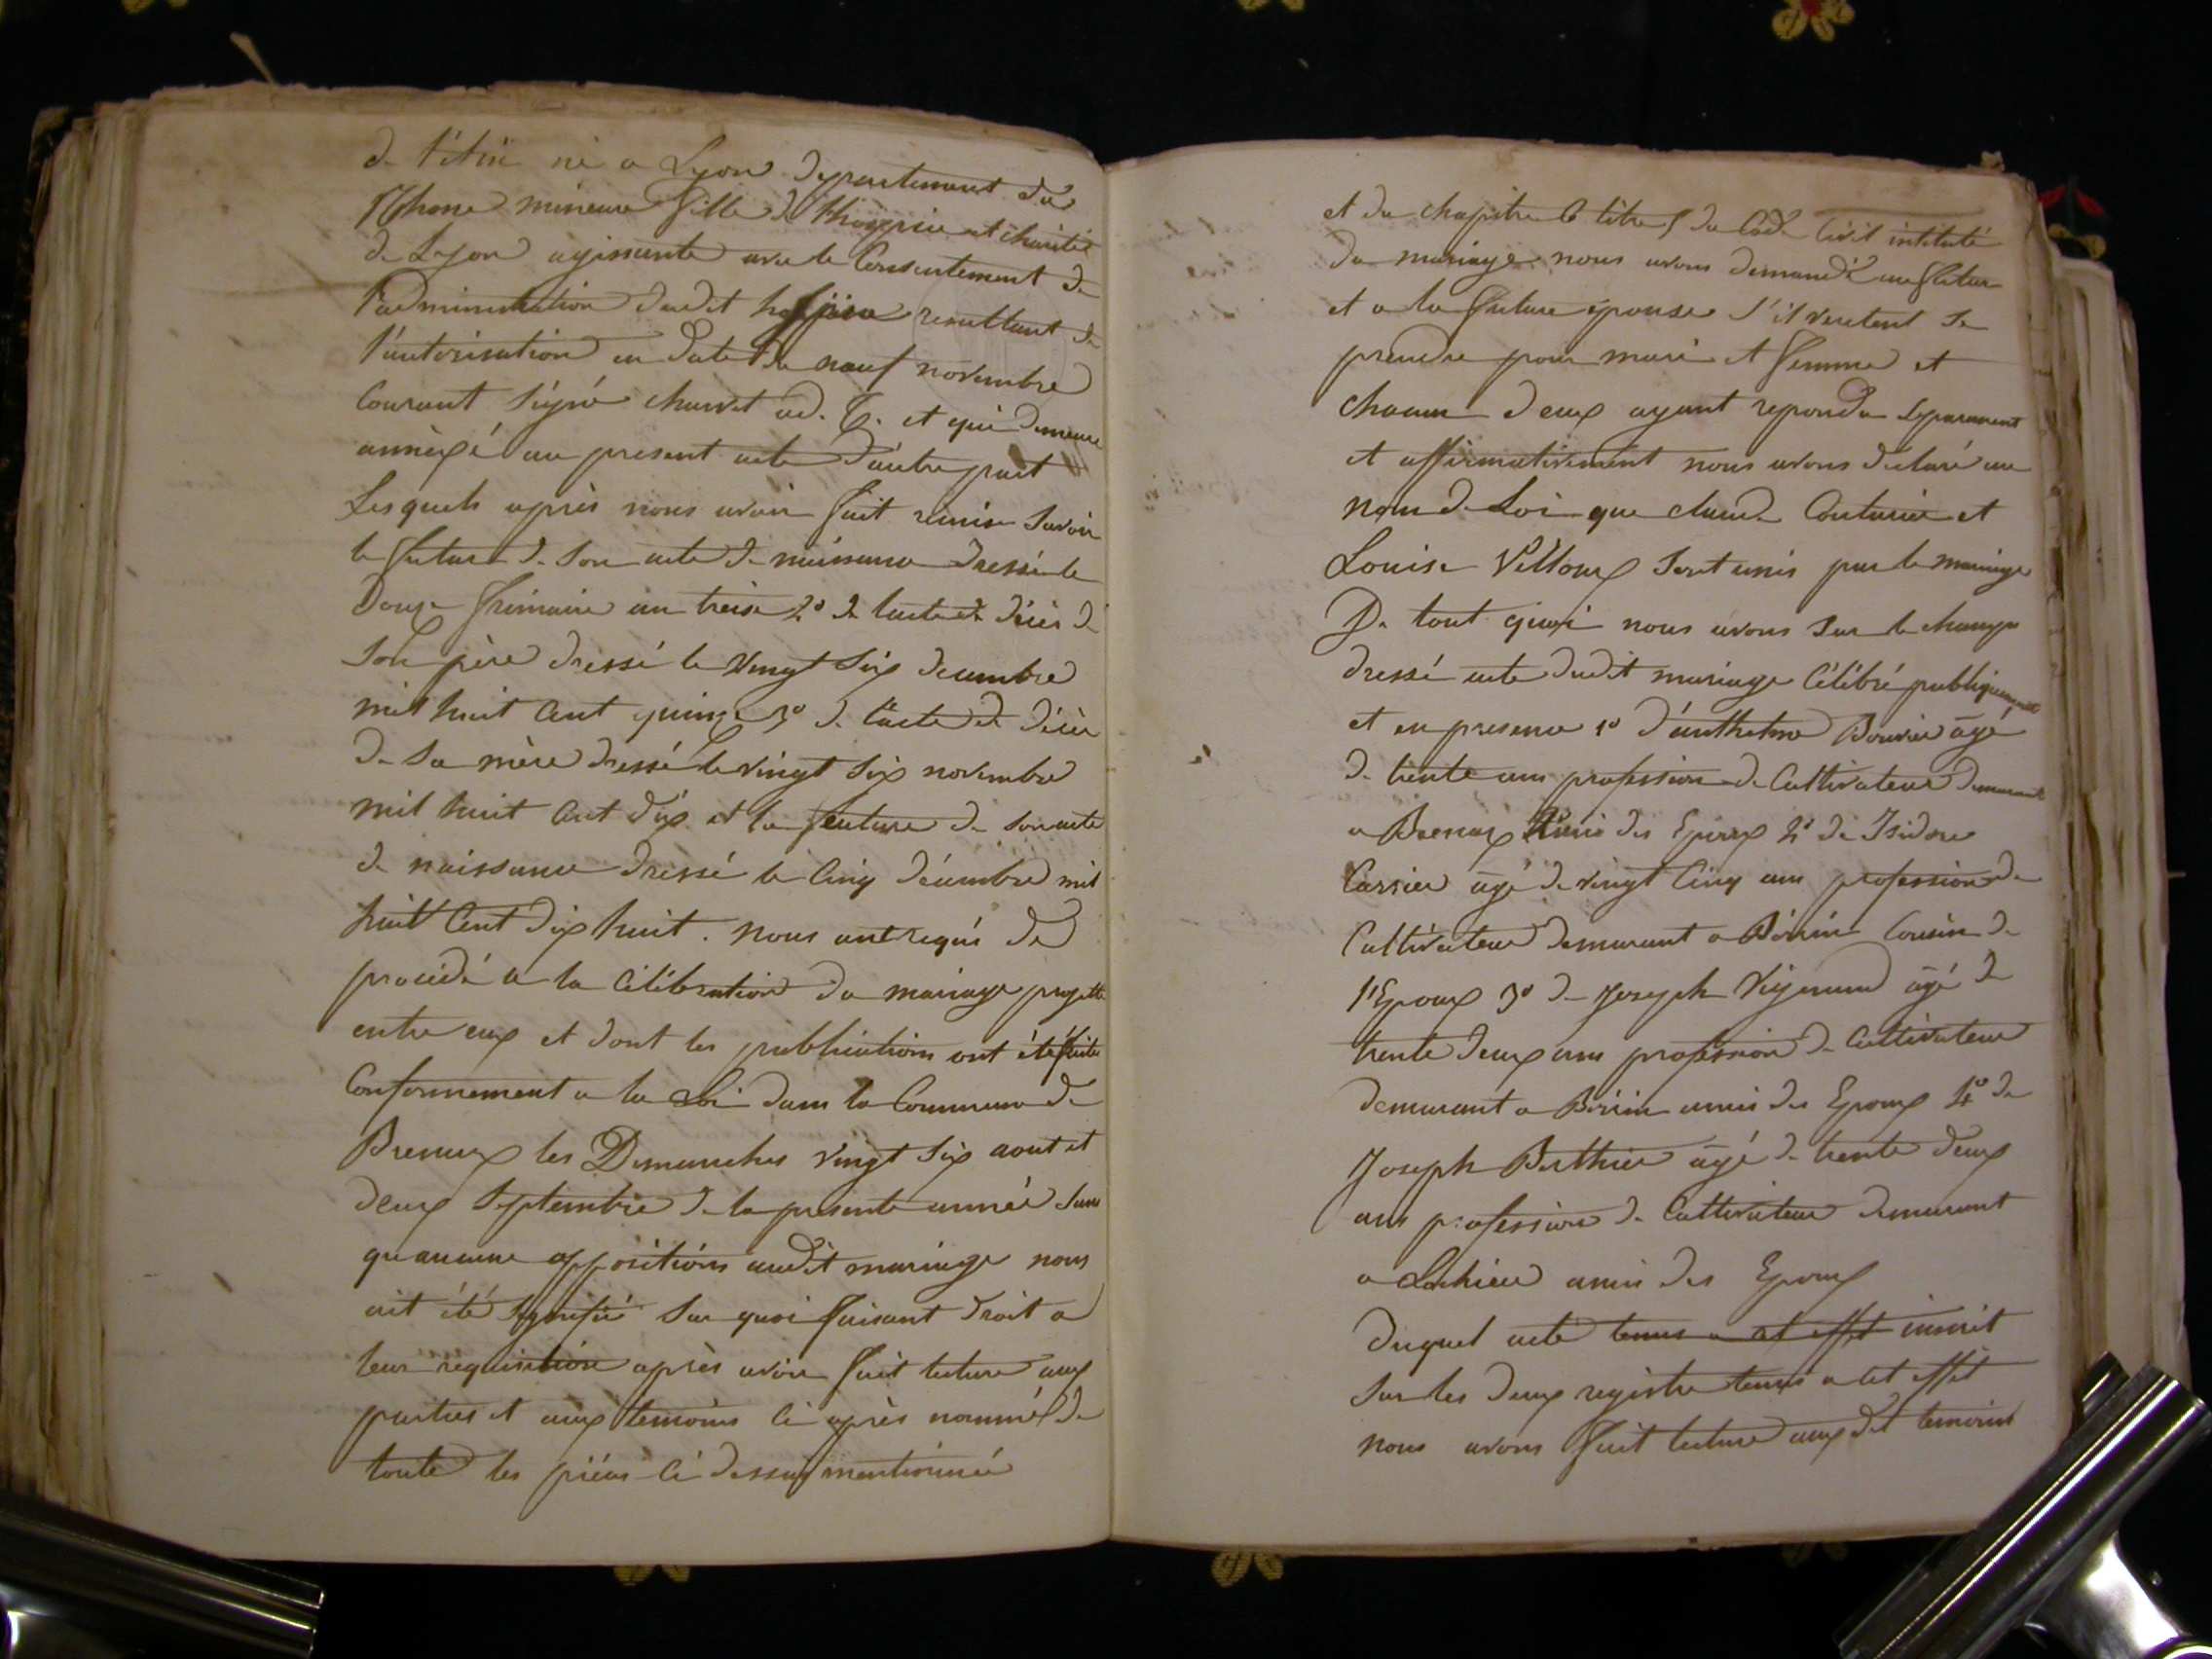 né a Lyon Departement du
Rhone mineure fille de l'hospice et charité
de Lyon agissante avec le Consentement de
l'administration dudit hospice resultant de
l'autorisation en date du neuf novembre
Courant signé et qui demeure
annèxé au present acte d'autre part
Lesquels après nous avoir fait remise Savoir
le futur de son acte de naissance dressé le
Douze frimaire an treise 2º de l'acte de décès de
son père dressé le vingt Six decembre
mil huit Cent quinze 3º de l'acte de décès
de sa mère dressé le vingt Six novembre
mil huit Cent dix et la feuture de son acte
de naissance dressé le Cinq décembre mil
huit Cent dix huit. nous ont requis de
procédé a la Célébration du mariage projetté
entre eux et dont les publications ont été faite
Conformement a la Loi dans la Commune de
Brenaz les Dimanches vingt Six aout et
deux Septembre de la presente année sans
qu'aucune oppositions audit mariage nous
ait été Signifié Sur quoi faisant droit a
leur requisition après avoir fait lecture aux
parties et aux temoins Ci après nommé de
toute les pièces Ci dessus mentionnée
et du chapitre 6 titre 5 du Code Civil intitulé
Du mariage nous avons demandé au futur
et a la future épouse s'il veulent se
prendre pour mari et femme et
chacun deux ayant repondu Separement
et affirmativement nous avons déclaré au
nom de Loi que claude Couturier et
Louise Villoux Sont unis par le mariage
De tout quoi nous avons Sur le champs
dressé acte dudit mariage Célébré publiquement
et en presence 1º d'anthelme Bouvier âgé
de trente ans profession de Cultivateur demeurant
a Brenaz amis des Epoux 2º de Isidore
Carrier âgé de vingt Cinq ans profession de
Cultivateur demeurant a Bénin Cousin de
l'Epoux 3º de Joseph âgé de
trente deux ans profession de Cultivateur
demeurant a Bénin amis des Epoux 4º de
Joseph Berthier âgé de trente deux
ans profession de Cultivateur demeurant
a Lochieu amis des Epoux
Duquel acte tenus a cet effet inscrit
Sur les deux registre tenus a cet effet
nous avons fait lecture aux dit temoins